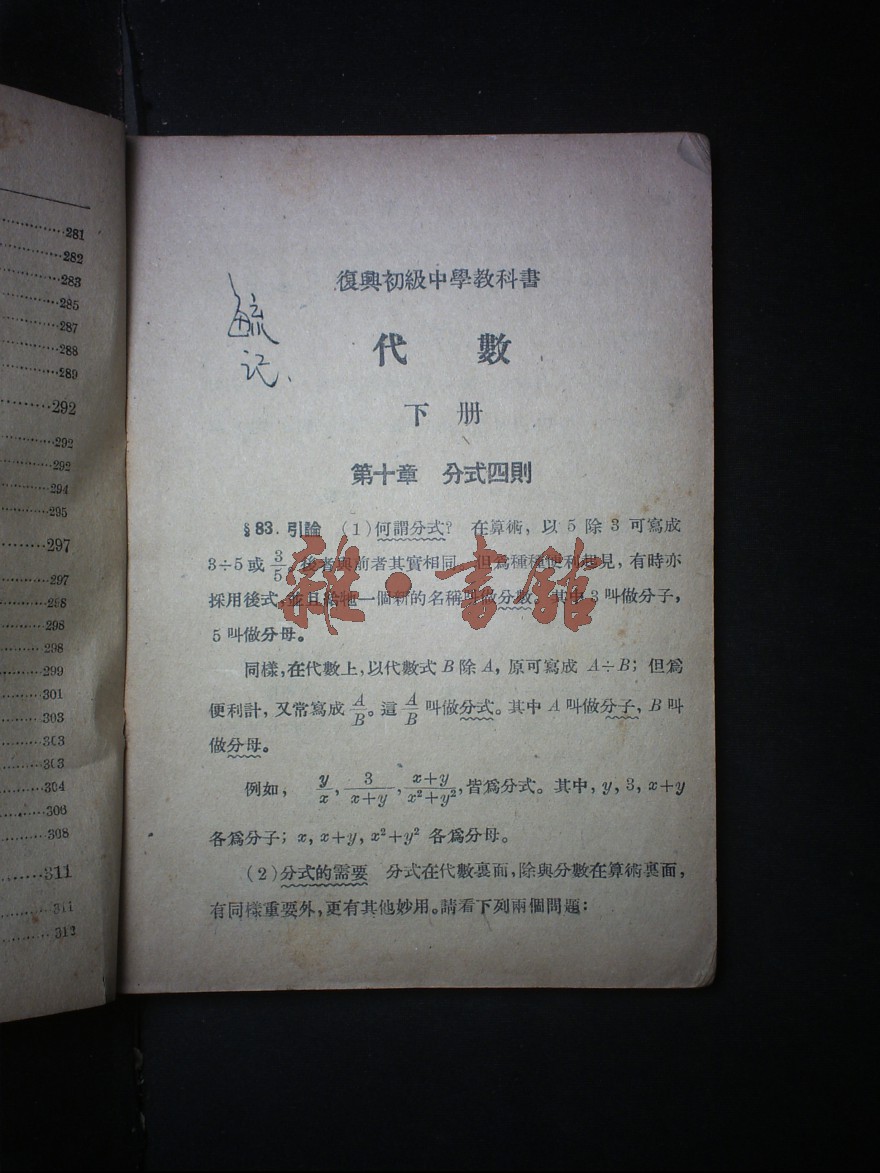 281
282
283
285
287
288
289
292
292
292
294
295
297
297
298
298
298
299
301
303
303
303
304
306
308
311
311
312
復興初級中學教科書
記
代 數
下 册
第十章 分式四則
§83. 引論 (1)何謂分式? 在算術,以5除3可寫成
3÷5或3/5,後者與前者其實相同,但爲種種便利起見,有時亦
採用後式,並且給牠一個新的名稱叫做分數。其中3叫做分子,
5叫做分母。
同樣,在代數上,以代數式B除A,原可寫成A÷B;但爲
便利計,又常寫成A/B。這A/B叫做分式。其中A叫做分子,B叫
做分母。
例如, y/x, 3/(x+y), (x+y)/(x²+y²),皆爲分式。其中,y,3,x+y
各爲分子;x,x+y,x²+y²各爲分母。
(2)分式的需要 分式在代數裏面,除與分數在算術裏面,
有同樣重要外,更有其他妙用。請看下列兩個問題:
雜·書館